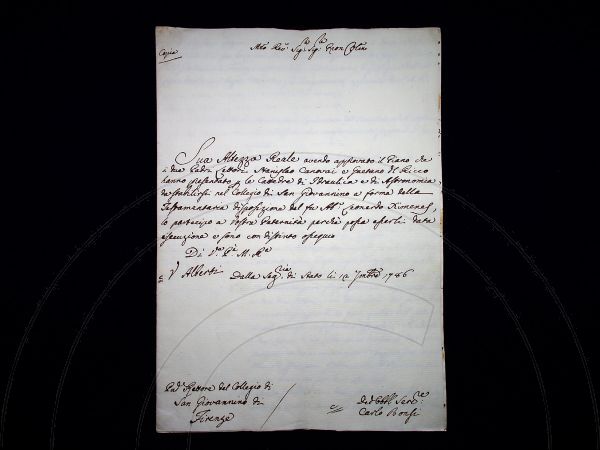 Copia
Mto Revdo Sigr Sigr Pron Colmo
Sua Altezza Reale avendo approvato il Piano che
i due Padri Lettori Stanislao Canovai e Gaetano del Ricco
hanno presentato p le Cattedre di Idraulica e di Astronomia
da stabilirsi nel Collegio di San Giovannino a forma della
Testamentaria disposizione del fu Abe Leonardo Ximenes,
lo partecipo a Vostra Paternità perchè possa esserli data
esecuzione e sono con distinto ossequio
Di V. Pà M. Rda
V Alberti Dalla Segria di Stato li 12 1786
Pad Rettore del Collegio di
San Giovannino di
Firenze
Devmo Obbmo Serre
Carlo Bonsi